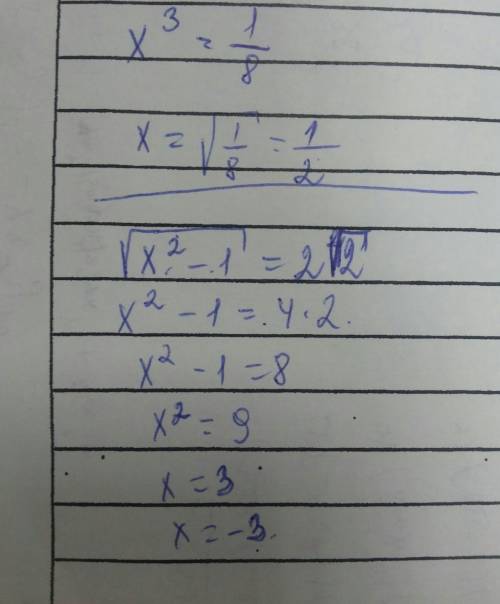 x³ = 1/8
x = √(1/8) = 1/2
√(x² - 1) = 2√2
x² - 1 = 4 · 2
x² - 1 = 8
x² = 9
x = 3
x = -3